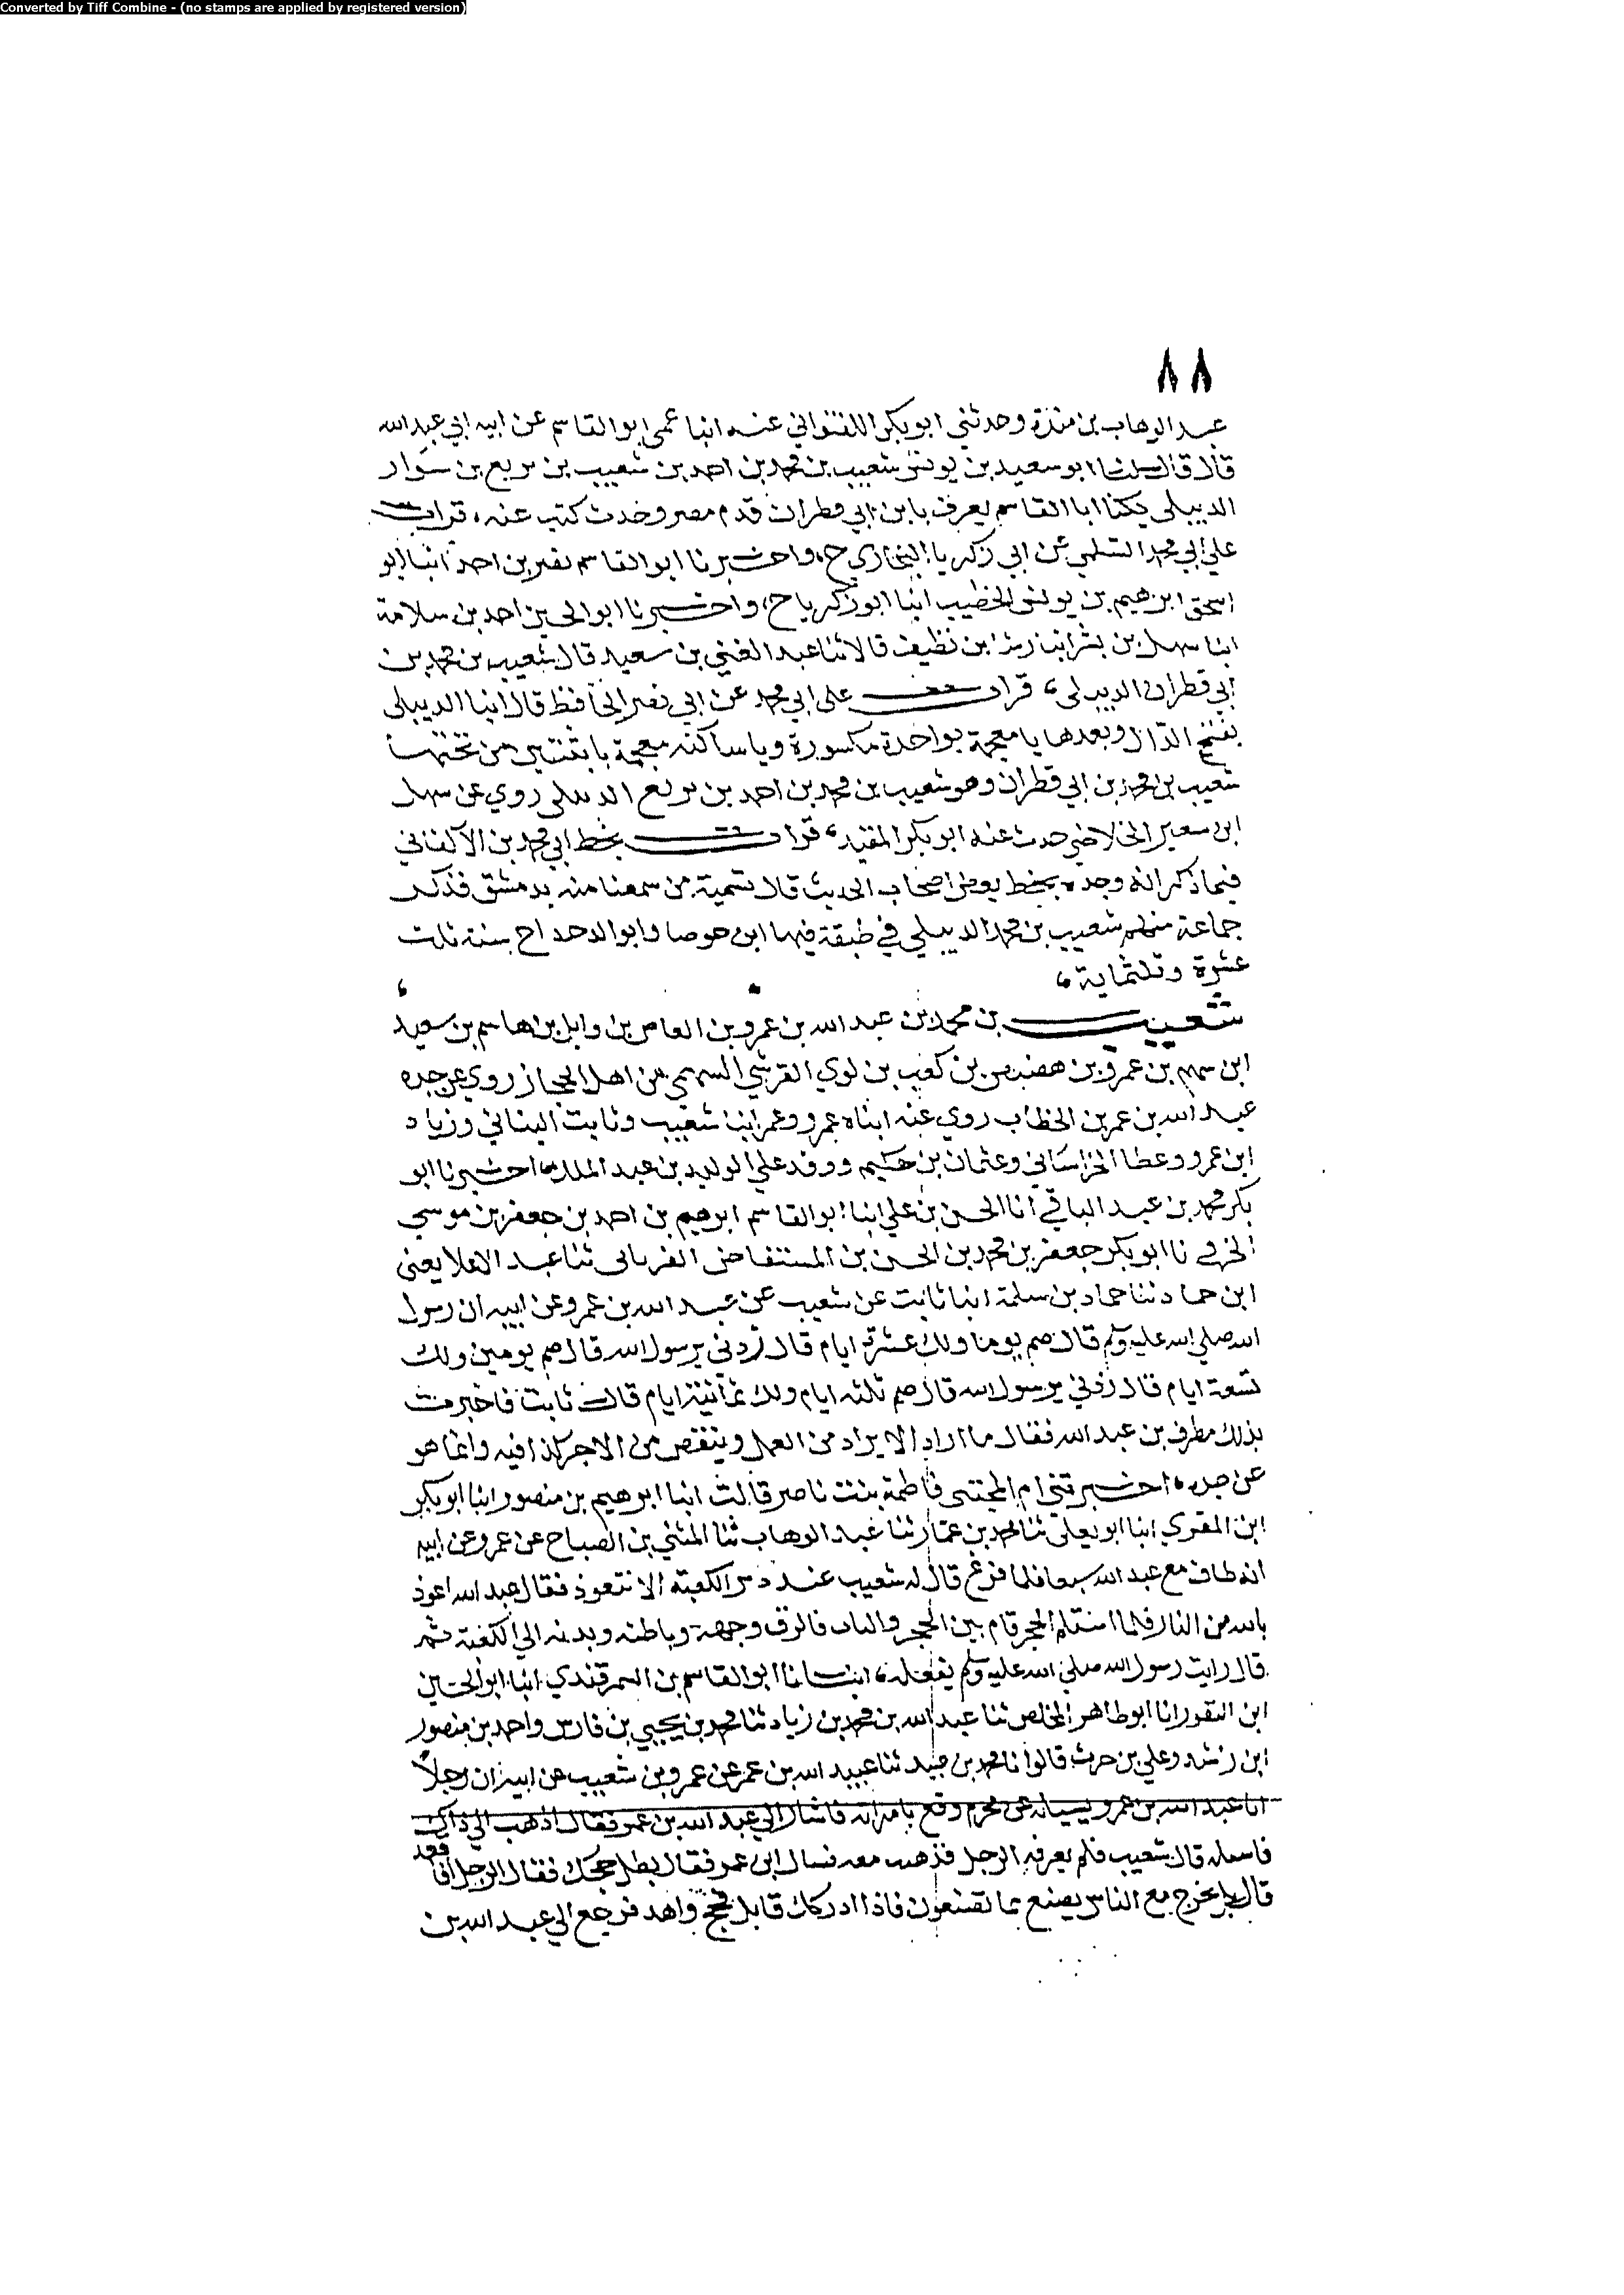 Converted by Tiff Combine - (no stamps are applied by registered version)
٨٨
عبد الوهاب بن مندة وحدثني ابو بكر اللفتواني عنه انبا عمي ابو القاسم عن ابيه ابي عبد الله
قال قال لنا ابو سعيد بن يونس شعيب بن محمد بن احمد بن شعيب بن بزيع بن سوار
الديبلي يكنا ابا القاسم يعرف بابن ابي قطران قدم مصر وحدث كتب عنه، قرات
علي ابي محمد السلمي عن ابي زكريا البخاري ح، واخبرنا ابو القاسم نصر بن احمد انبا ابو
اسحق ابرهيم بن يونس الخطيب انبا ابو زكريا ح، واخبرنا ابو الحسين احمد بن سلامة
ابنا سهل بن بشر انبا رشا بن نظيف قالا ثنا عبد الغني بن سعيد قال شعيب بن محمد بن
ابي قطران الديبلي، قرات على ابي محمد عن ابي نصر الحافظ قال انبا الديبلي
بفتح الدال وبعدها يا معجمة بواحدة مكسورة ويا ساكنه معجمة باثنتين من تحتها
شعيب بن محمد بن ابي قطران وهو شعيب بن محمد بن احمد بن بزيع الديبلي روي عن سهل
ابن سعير الخلاطي حدث عنه ابو بكر المفيد، قرات بخط ابي محمد بن الاكفاني
فيما ذكر انه وجده بخط بعض اصحاب الحديث قال تسمية من سمعنا منه بدمشق فذكر
جماعة منهم شعيب بن محمد الديبلي في طبقة فيها ابن جوصا وابو الدحداح سنة ثلث
عشرة وثلثماية،
شعيب بن محمد بن عبد الله بن عمرو بن العاص بن وايل بن هاسم بن سعيد
ابن سهم بن عمرو بن هصيص بن كعب بن لوي القرشي السهمي من اهل الحجاز روي عن جده
عبد الله بن عمر بن الخطاب روي عنه ابناه عمرو وعمر ابنا شعيب وثابت البناني وزياد
ابن عمرو وعطا الخراساني وعثمان بن حكيم ووفد علي الوليد بن عبد الملك، اخبرنا ابو
بكر محمد بن عبد الباقي انا الحسن بن علي انبا ابو القاسم ابرهيم بن احمد بن جعفر بن موسي
الخرقي نا ابو بكر جعفر بن محمد بن الحسن بن المستفاض الفريابي ثنا عبد الاعلا يعني
ابن حماد ثنا حماد بن سلمة انبا ثابت عن شعيب عن عبد الله بن عمرو عن ابيه ان رسول
الله صلي الله عليه وسلم قال صم يوما ولك عشرة ايام قال زدني يرسول الله قال صم يومين ولك
تسعة ايام قال زدني يرسول الله قال صم ثلثه ايام ولك ثمانية ايام قال ثابت فاخبرت
بذلك مطرف بن عبد الله فقال ما اراه الا يزاد من العمل وينقص من الاجر كذا فيه وانما هو
عن جده، اخبرتني ام المجتبى فاطمة بنت ناصر قالت انبا ابرهيم بن منصور ابنا ابو بكر
ابن المقري ابنا ابو يعلى ثنا محمد بن عمار ثنا عبد الوهاب ثنا المثني بن الصباح عن عمرو عن ابيه
انه طاف مع عبد الله سبعا فلما فرغ قال له شعيب عند دبر الكعبة الا نتعوذ فقال عبد الله اعوذ
بالله من النار فلما استلم الحجر قام بين الحجر والباب فالزق وجهه وباطنه وبدنه الي الكعبة ثم
قال رايت رسول الله صلي الله عليه وسلم يفعله، انبانا ابو القاسم بن السمرقندي انبا ابو الحسين
ابن النقور انا ابو طاهر المخلص ثنا عبد الله بن محمد بن زياد ثنا محمد بن يحيي بن فارس واحمد بن منصور
ابن راشد وعلي بن حرب قالوا نا محمد بن عبيد ثنا عبيد الله بن عمر عن عمرو بن شعيب عن ابيه ان رجلا
اتا عبد الله بن عمرو يسياله عن محرم وقع بامراته فاشار الي عبد الله بن عمر فقال اذهب الي ذاك
فاسله قال شعيب فلم يعرفه الرجل فذهب معه فسال ابن عمر فقال بطل حجك فقال الرجل افاقعد
قال بل يخرج مع الناس يصنع بما تصنعون فاذا ادركك قابل فحج واهد فرجع الي عبد الله بن